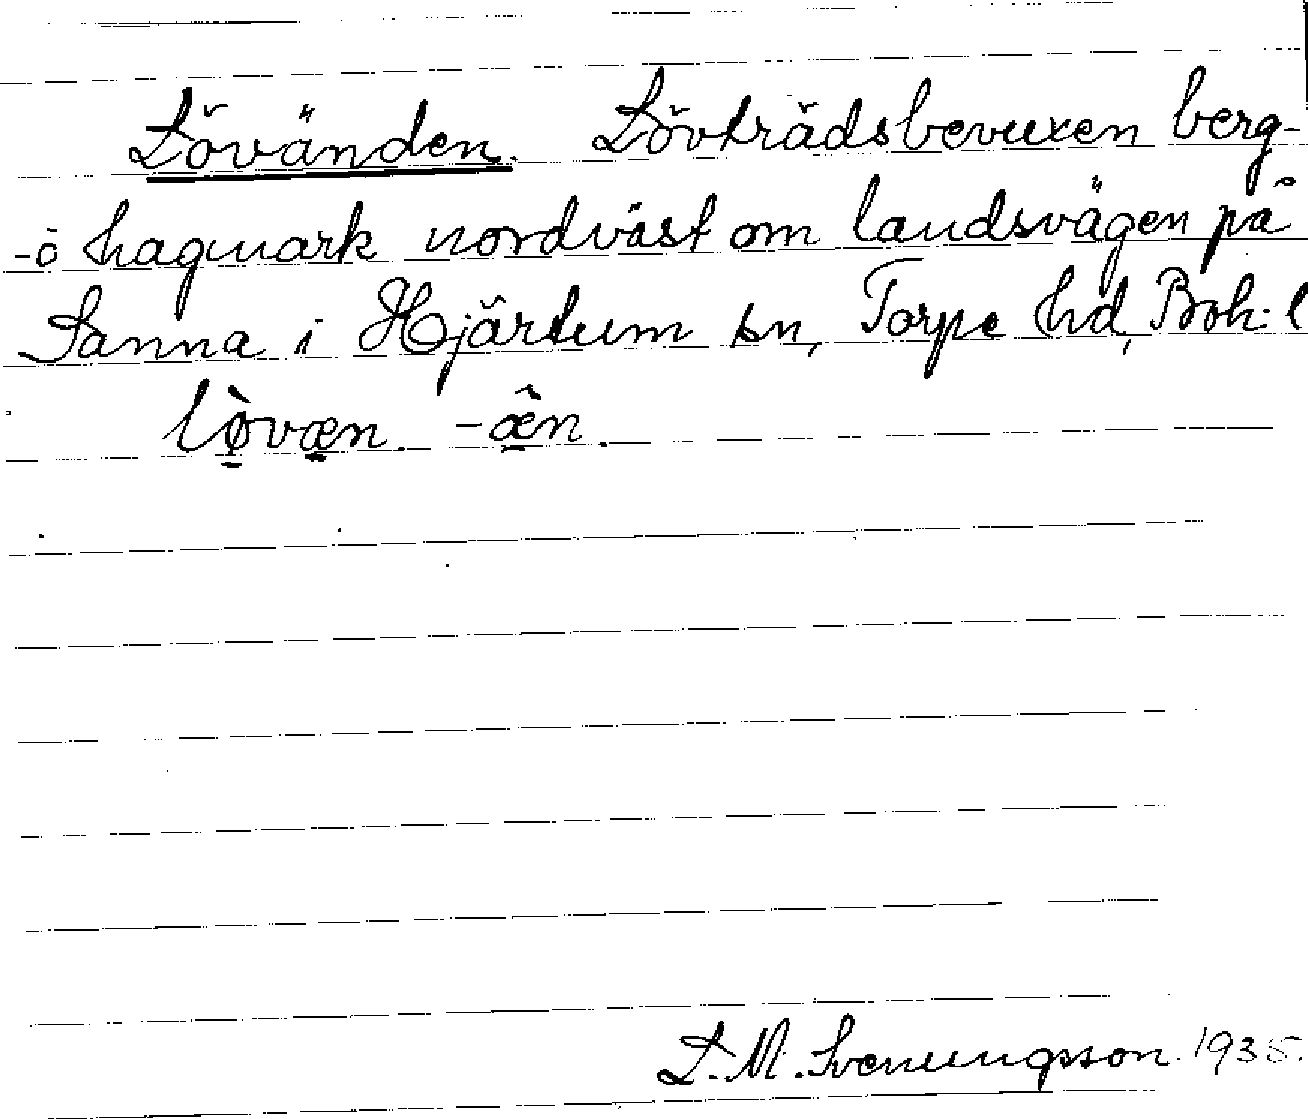 Lövänden. Lövträdsbevuxen berg-
-o hagmark nordväst om landsvägen på
Sanna i Hjärtum sn, Torpe hd, Boh: l
lø̀væn. -æ̂n.
L. M. Svenungsson. 1935.